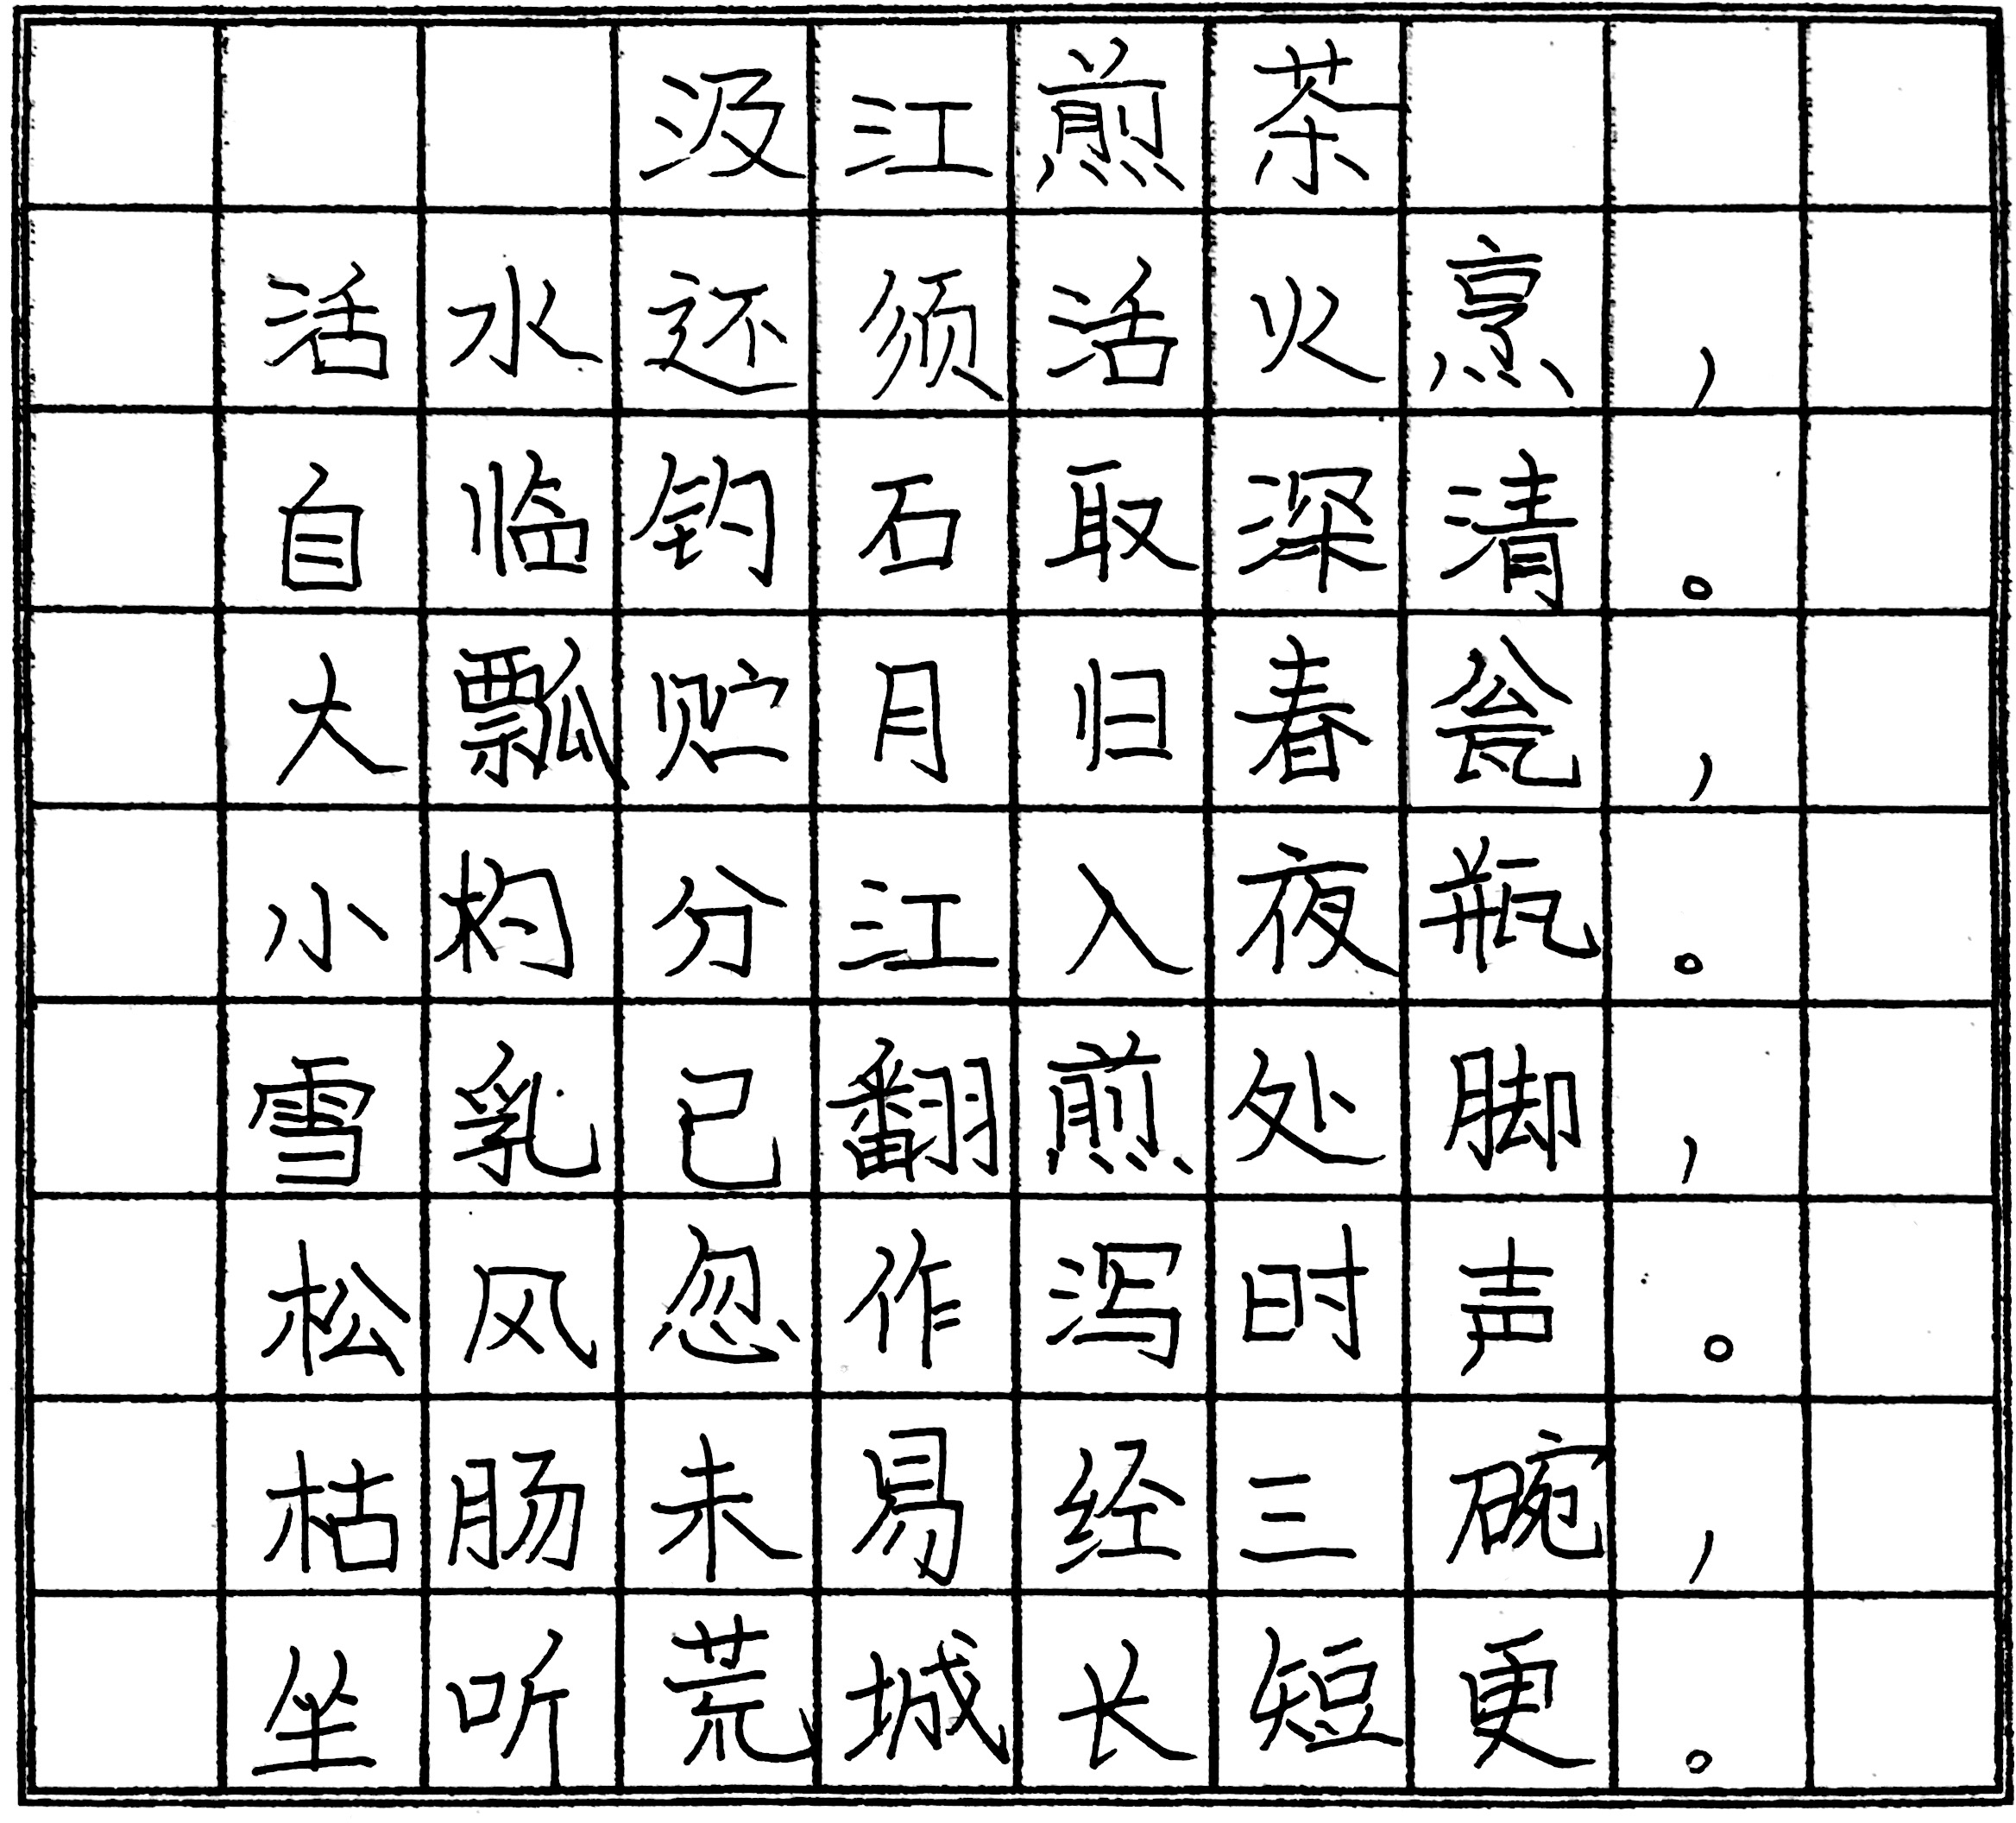 汲江煎茶
活水还须活火烹，
自临钓石取深清。
大瓢贮月归春瓮，
小杓分江入夜瓶。
雪乳已翻煎处脚，
松风忽作泻时声。
枯肠未易经三碗，
坐听荒城长短更。